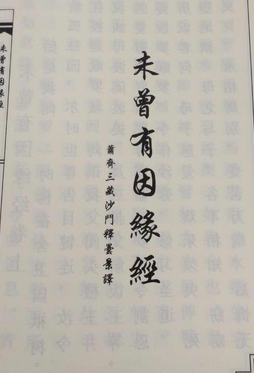 未曾有因緣經
蕭齊三藏沙門釋曇景譯
未曾有因緣經